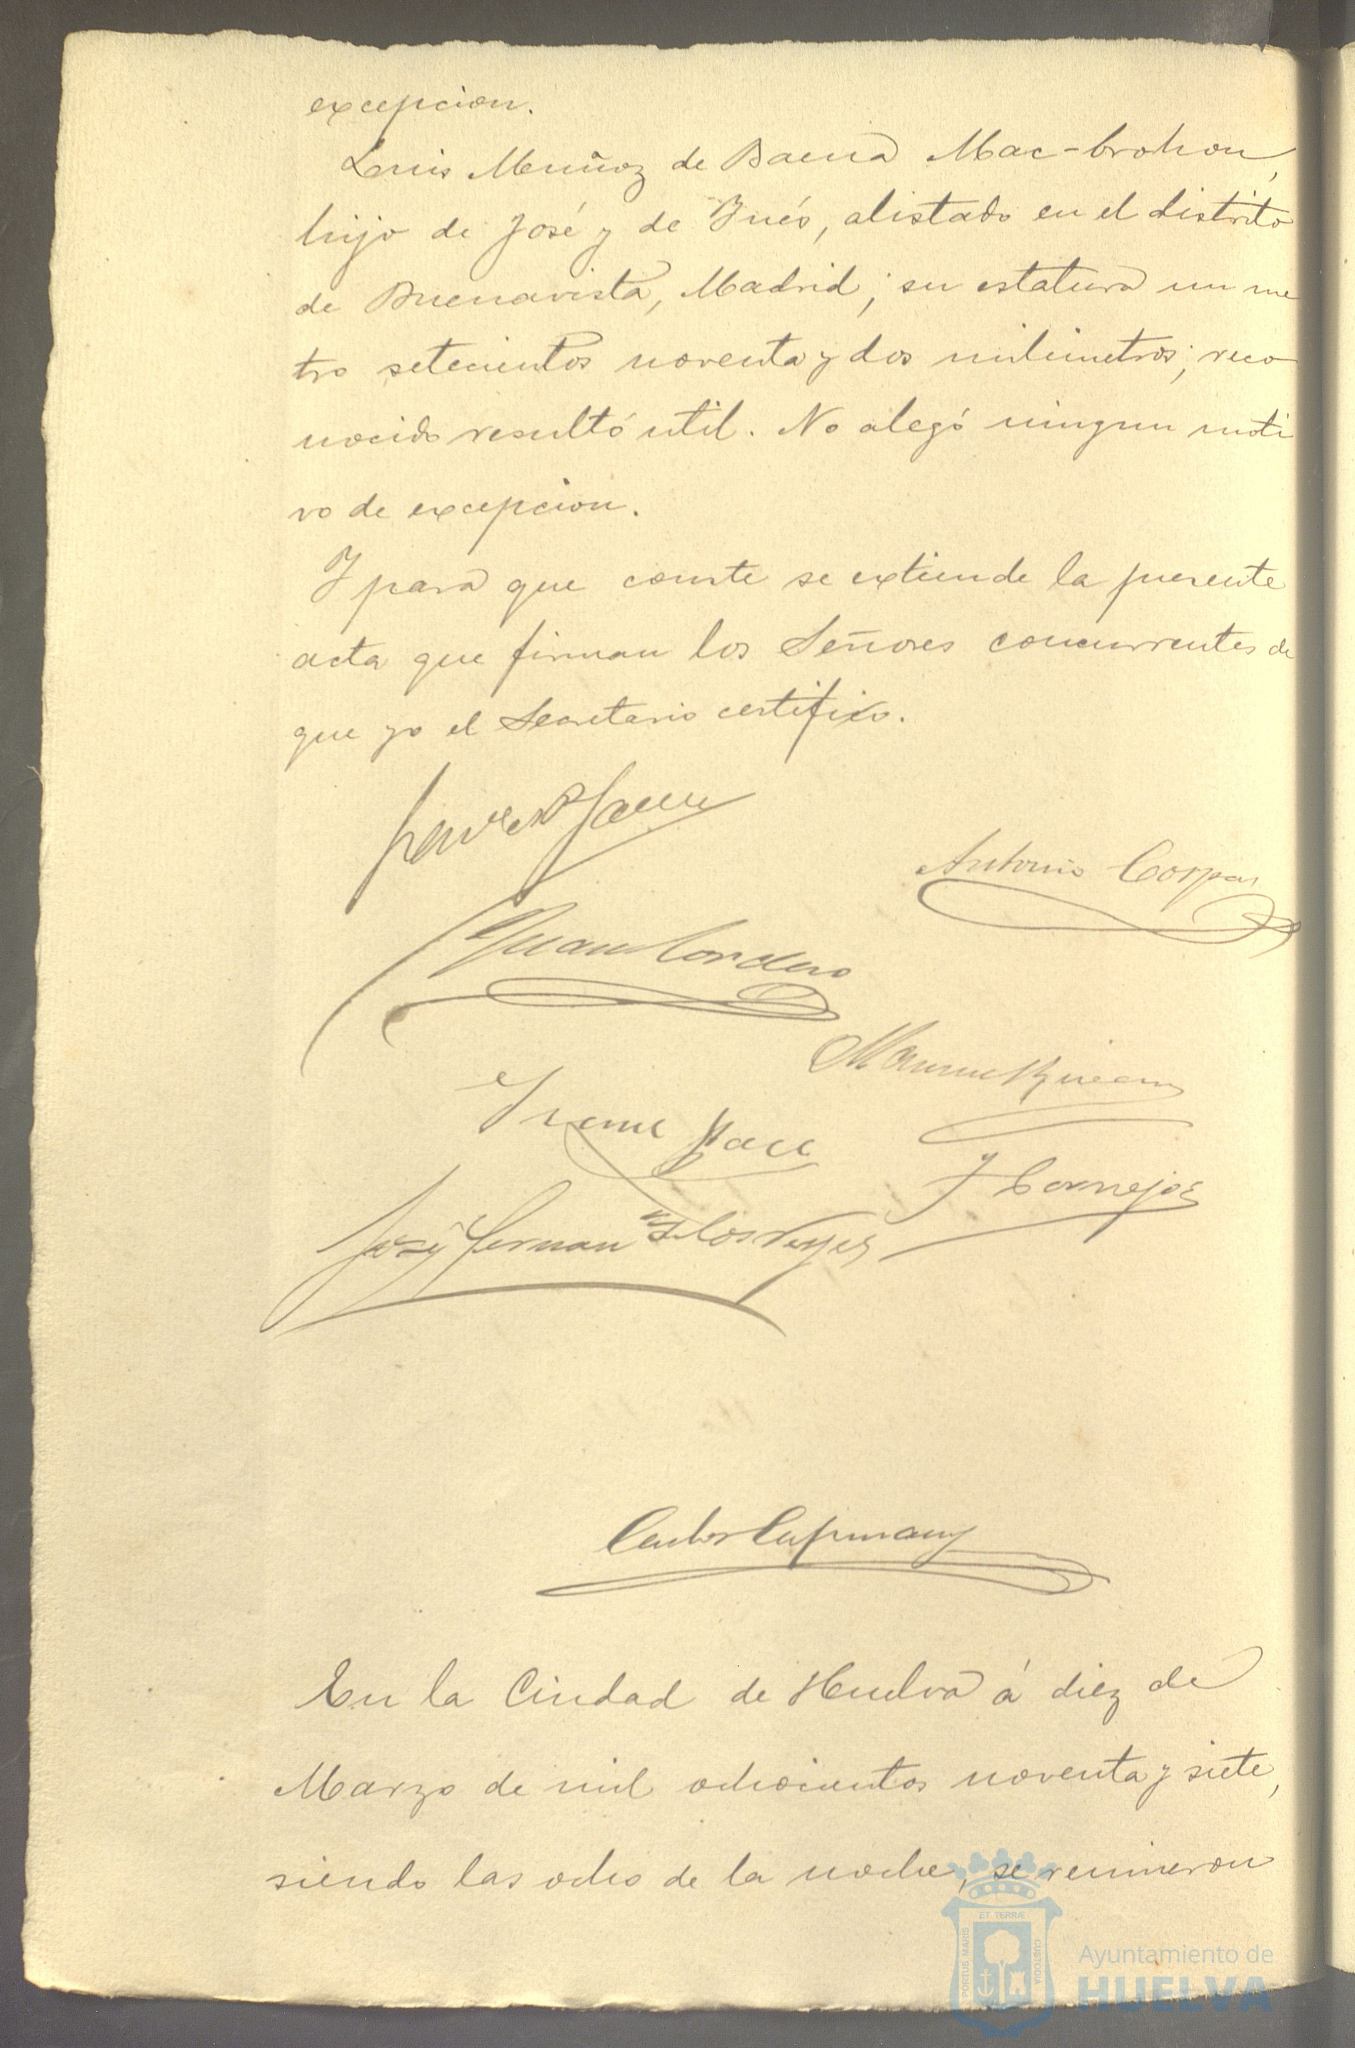 excepcion.
Luis Muñoz de Baena Mac-brohon,
hijo de José y de Inés, alistado en el distrito
de Buenavista, Madrid; su estatura un me
tro setecientos noventa y dos milimetros; reco
nocido resultó util. No alegó ningun moti
vo de excepcion.
Y para que conste se extiende la presente
acta que firman los Señores concurrentes de
que yo el Secretario certifico.
Antonio Corpas
Juan Cordero
Manuel
J Cornejo
José Fernan de los Reyes
Carlos Capmany
En la Ciudad de Huelva á diez de
Marzo de mil ochocientos noventa y siete,
siendo las ocho de la noche, se reunieron
PORTUS MARIS ET TERRÆ CUSTODIA
Ayuntamiento de
HUELVA